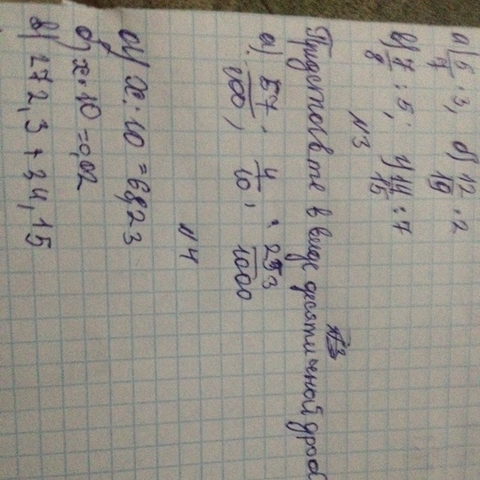 а) 5/7 · 3, б) 12/19 · 2
в) 7/8 : 5; г) 14/15 : 7
№3
Представте в виде десятичной
а) 57/100, 4/10, 253/1000
№4
а) x : 10 = 6823
б) x · 10 = 0,02
в) 272,3 + 34,15